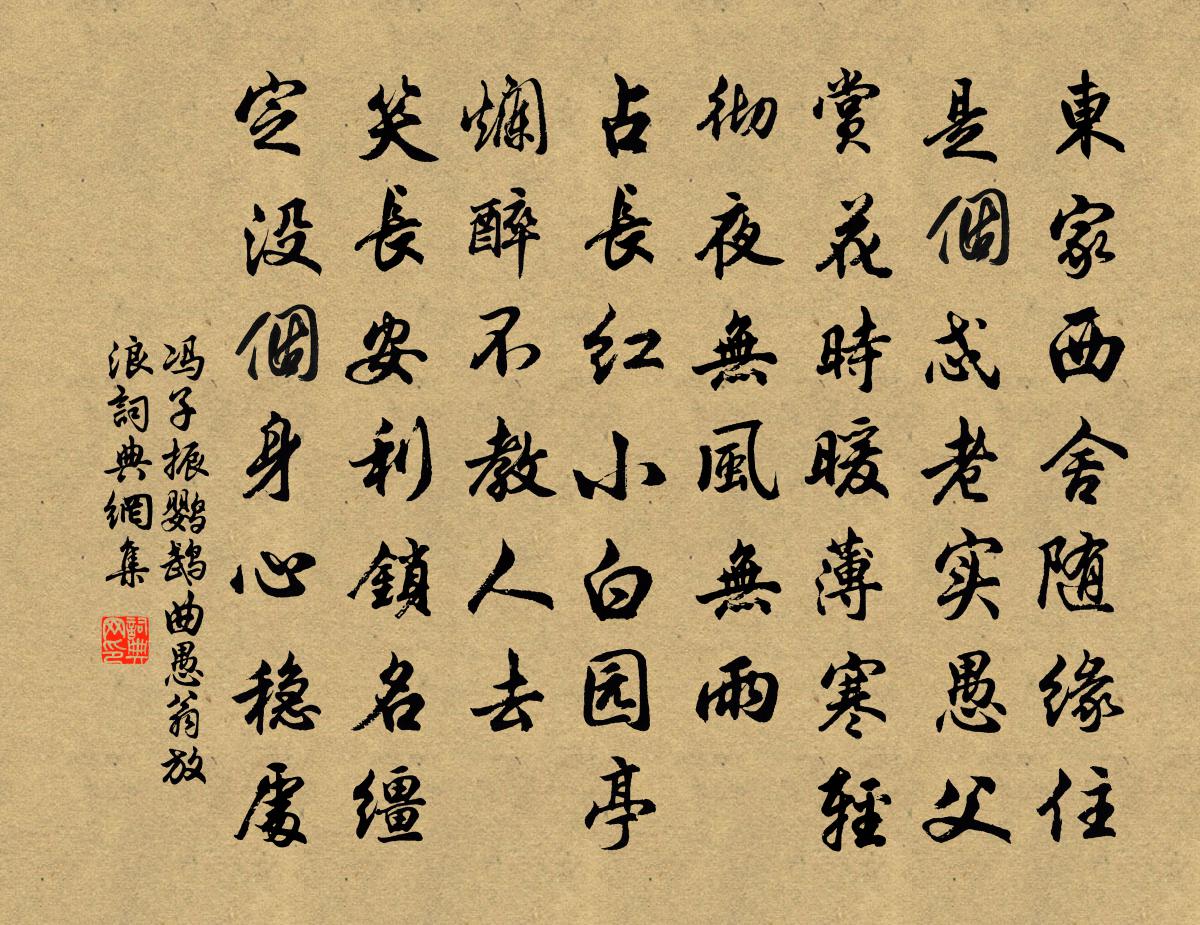 東家西舍随缘住
是個忒老实愚父
賞花時暖薄寒輕
彻夜無風無雨
占長红小白园亭
爛醉不教人去
笑長安利鎖名缰
定没個身心稳處
冯子振鹦鹉曲愚翁放
浪詞典網集
詞典
网印